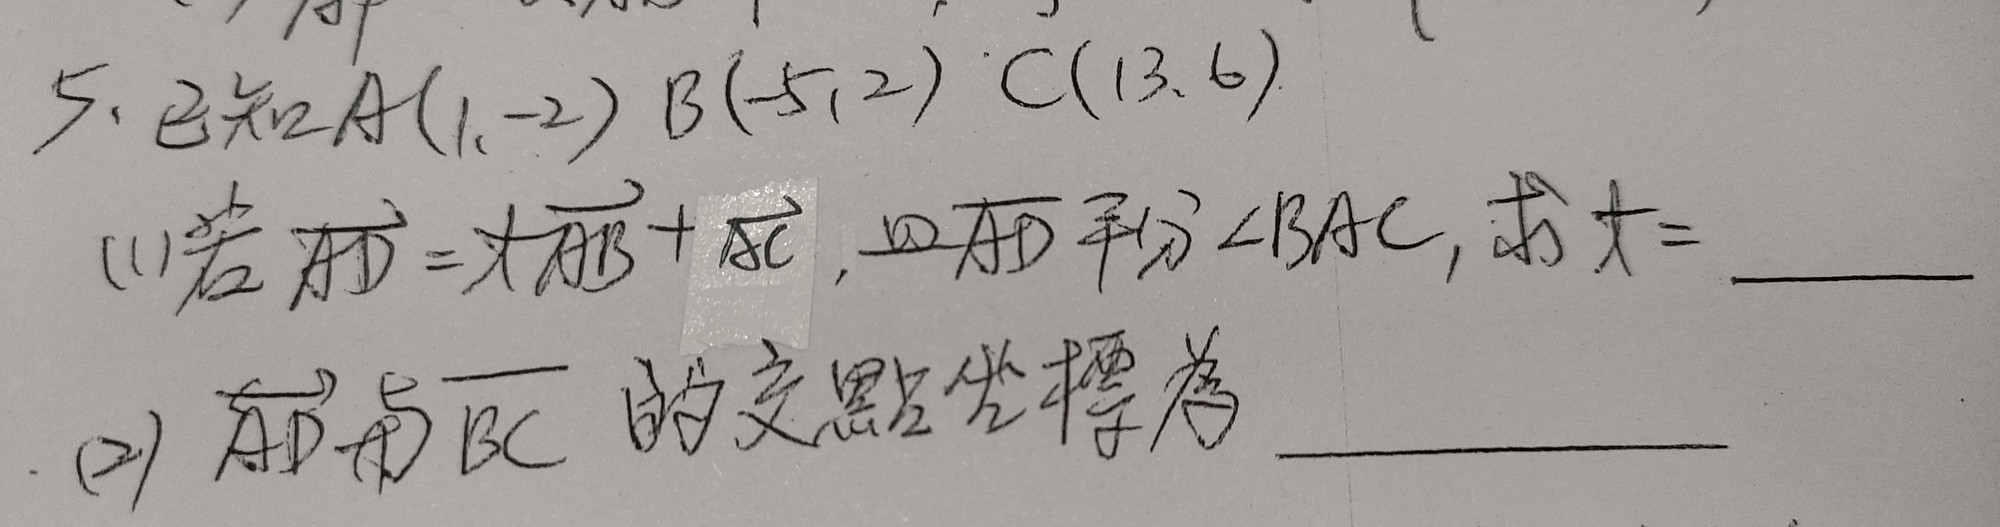 5. 已知A(1,-2) B(-5,2) C(13,6)
(1)若 AD = t AB + AC, 且 AD 平分∠BAC, 求 t = ____
(2) AD 與 BC 的交點坐標為 ____